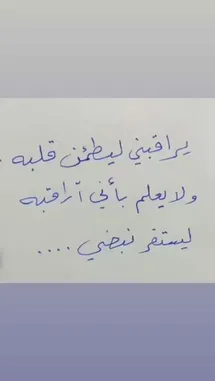 يراقبني ليطمئن قلبه .
ولا يعلم بأني أراقبه
ليستقر نبضي ....